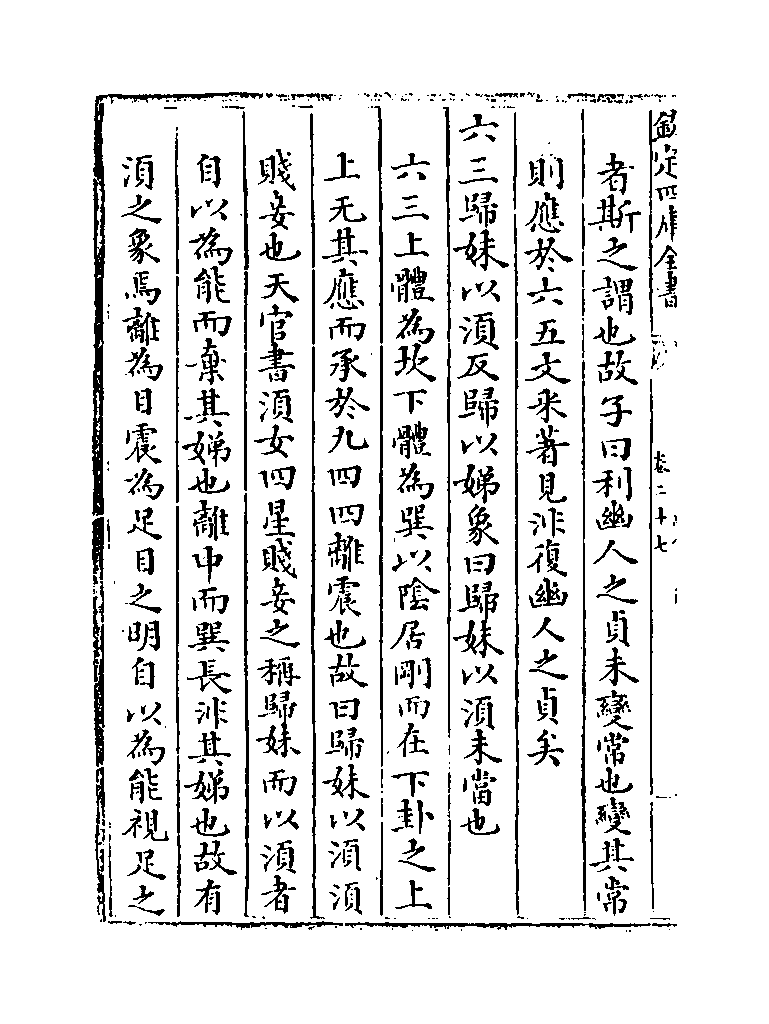 欽定四庫全書
卷二十七
者斯之謂也故子曰利幽人之貞未變常也變其常
則應於六五文采著見非復幽人之貞矣
六三歸妹以須反歸以娣象曰歸妹以須未當也
六三上體為坎下體為巽以陰居剛而在下卦之上
上无其應而承於九四四離震也故曰歸妹以須須
賤妾也天官書須女四星賤妾之稱歸妹而以須者
自以為能而棄其娣也離中而巽長非其娣也故有
須之象焉離為目震為足目之明自以為能視足之